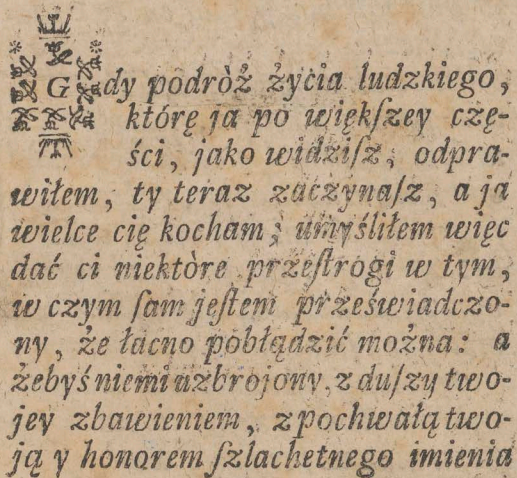 Gdy podròż życia ludzkiego,
którę ja po więkſzey czę-
ści, jako widziſz, odpra-
wiłem, ty teraz zaczynaſz, a ja
wielce cię kocham; umyśliłem więc
dać ci niektòre przeſtrogi w tym,
w czym ſam jeſtem przeświadczo-
ny, że łacno pobłądzić można: a
żebyś niemi uzbrojony, z duſzy two-
jey zbawieniem, z pochwałą two-
ją y honorem ſzlachetnego imienia